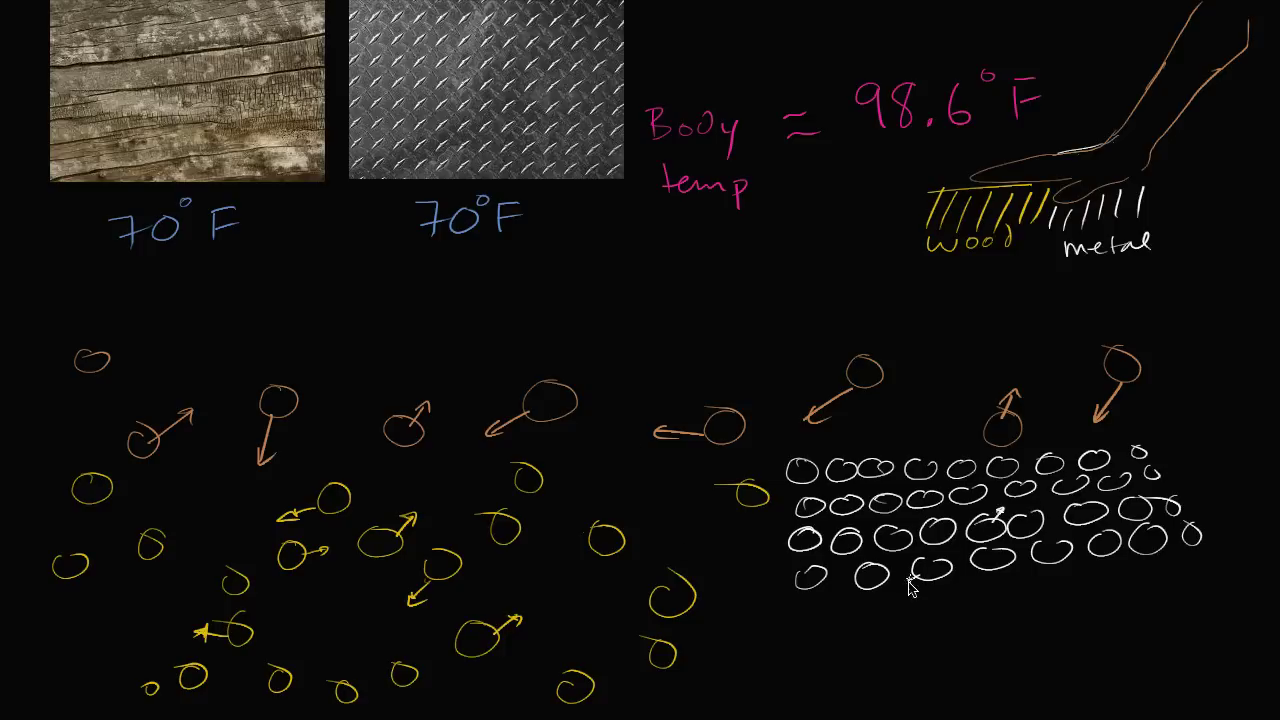 70°F
70°F
Body temp ≈ 98.6°F
wood
metal